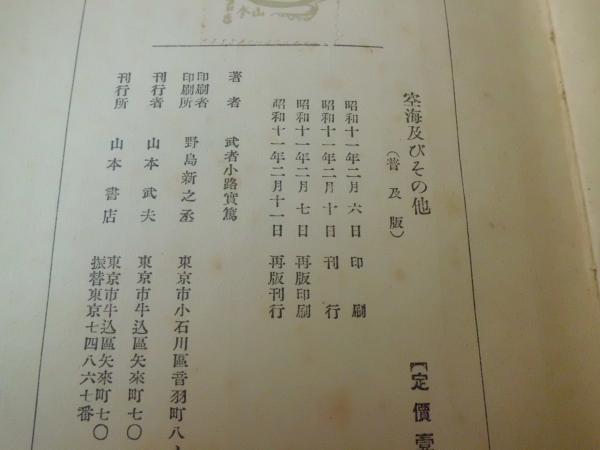 空海及びその他
(普及版)
昭和十一年二月六日印刷
昭和十一年二月十日刊行
昭和十一年二月七日再版印刷
昭和十一年二月十一日再版刊行
【定價壹
著者 武者小路實篤
印刷者
印刷所 野島新之丞 東京市小石川區音羽町八ノ
刊行者 山本武夫 東京市牛込區矢來町七〇
刊行所 山本書店 東京市牛込區矢來町七〇
振替東京七四八六七番
山本